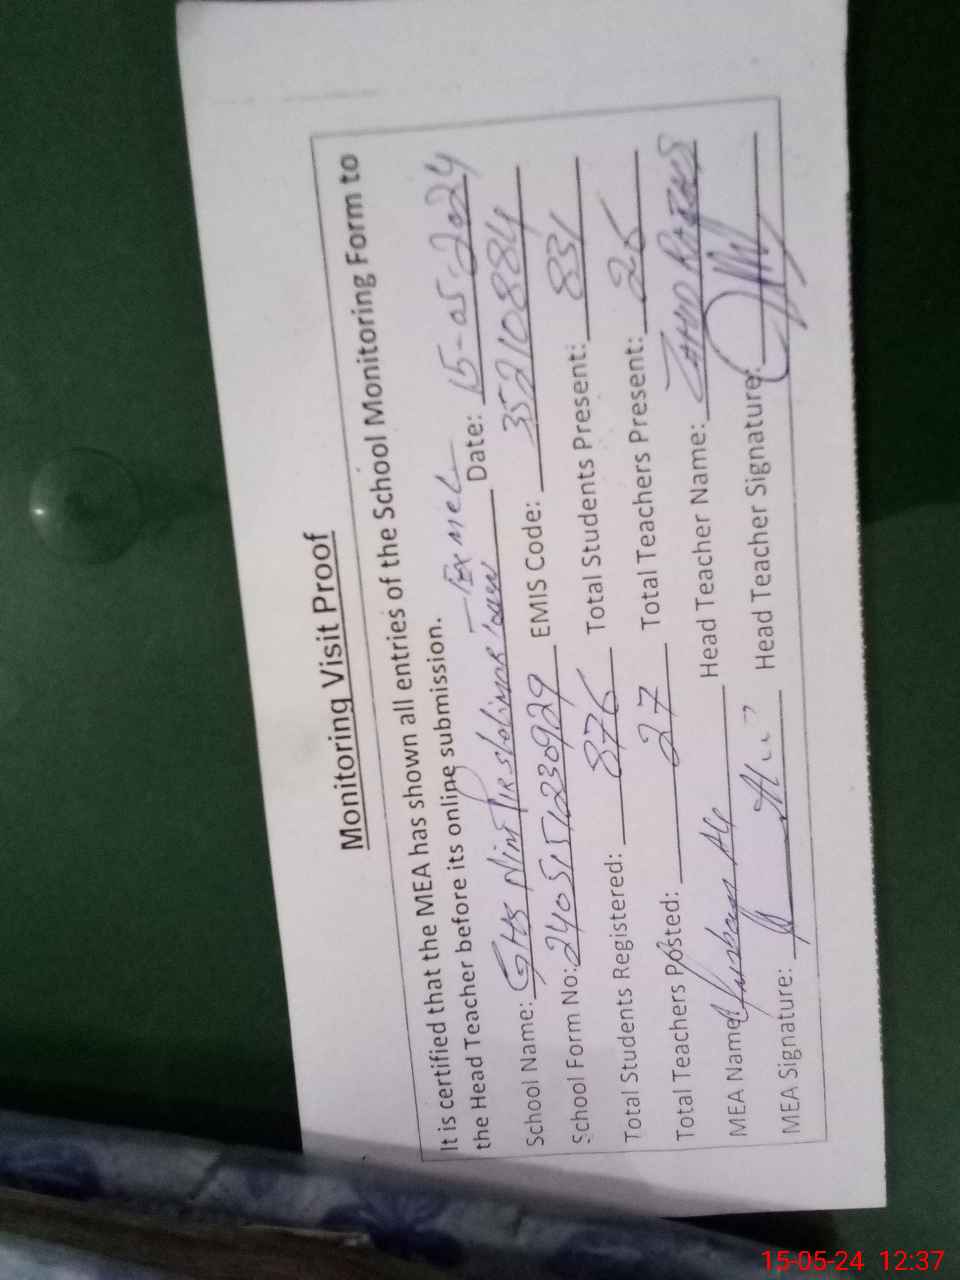 Monitoring Visit Proof
It is certified that the MEA has shown all entries of the School Monitoring Form to
the Head Teacher before its online submission.
School Name: GHS Date: 15-05-2024
School Form No: EMIS Code: 35210884
Total Students Registered: 876 Total Students Present: 831
Total Teachers Posted: 27 Total Teachers Present: 26
MEA Name: Head Teacher Name:
MEA Signature: Head Teacher Signature:
15-05-24 12:37